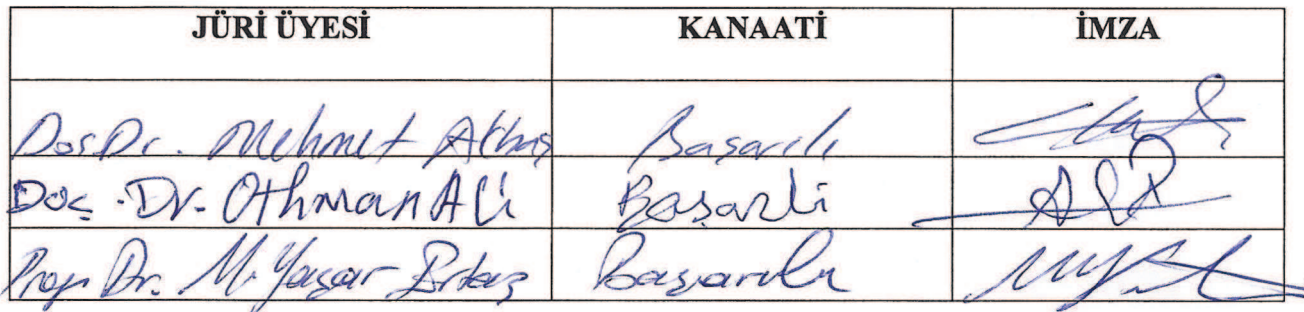 JÜRİ ÜYESİ KANAATİ İMZA
Doç Dr. Mehmet Aktaş Başarılı
Doç. Dr. Othman Ali Başarılı
Prof. Dr. M. Yaşar Ertaş Başarılı